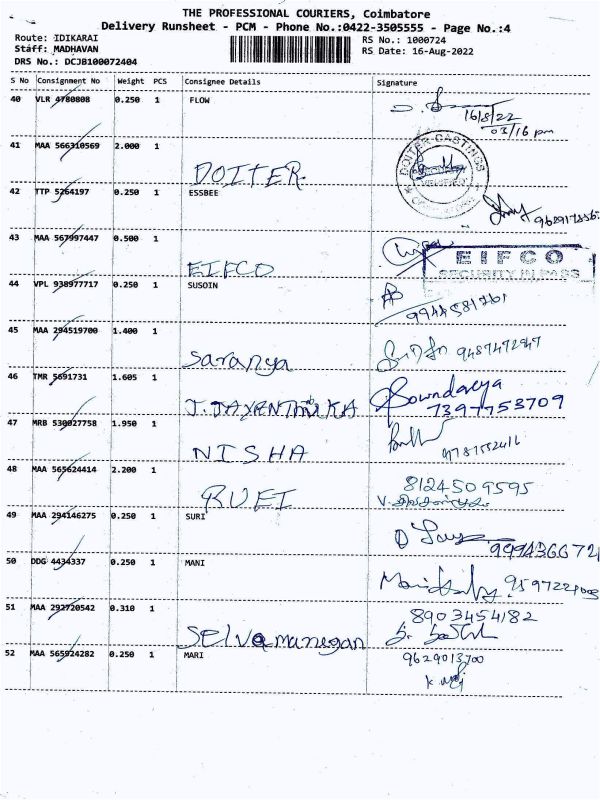 THE PROFESSIONAL COURIERS, Coimbatore
Delivery Runsheet - PCM - Phone No.:0422-3505555 - Page No.:4
Route: IDIKARAI
RS No.: 1000724
Staff: MADHAVAN
RS Date: 16-Aug-2022
DRS No.: DCJB100072404
S No Consignment No Weight PCS Consignee Details Signature
40 VLR 4780808 0.250 1 FLOW
16/8/22
03/16 pm
41 MAA 566310569 2.000 1 DOITER
DOITER CASTINGS
42 TTP 5264197 0.250 1 ESSBEE
43 MAA 567997447 0.500 1 EIFCO
EIFCO
SECURITY IN PASS
44 VPL 938977717 0.250 1 SUSOIN
9944581761
45 MAA 294519700 1.400 1 Saranya 9487472947
46 TMR 5691731 1.605 1 J. JAYENTHUKA Soundarya
7397753709
47 MRB 530027758 1.950 1 NISHA
9787552416
48 MAA 565624414 2.200 1 RUEI 8124509595
49 MAA 294146275 0.250 1 SURI
50 DDG 4434337 0.250 1 MANI
51 MAA 292720542 0.310 1 Selvamanegan 8903454182
52 MAA 565924282 0.250 1 MARI 9629013700